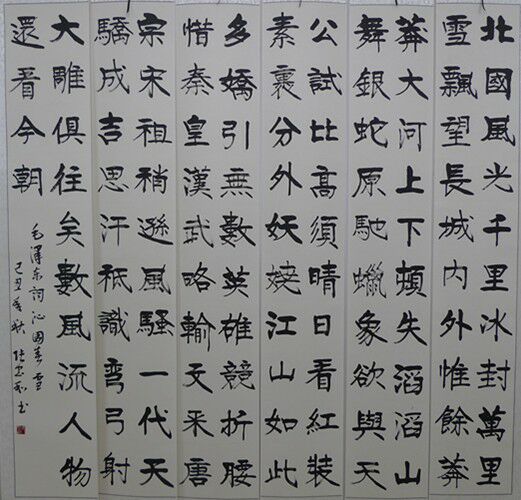 北國風光千里冰封萬里
雪飄望長城內外惟餘莽
莽大河上下頓失滔滔山
舞銀蛇原馳蠟象欲與天
公試比高須晴日看紅裝
素裹分外妖嬈江山如此
多嬌引無數英雄競折腰
惜秦皇漢武略輸文采唐
宗宋祖稍遜風騷一代天
驕成吉思汗祗識彎弓射
大雕俱往矣數風流人物
還看今朝
毛澤東詞沁園春雪
己丑